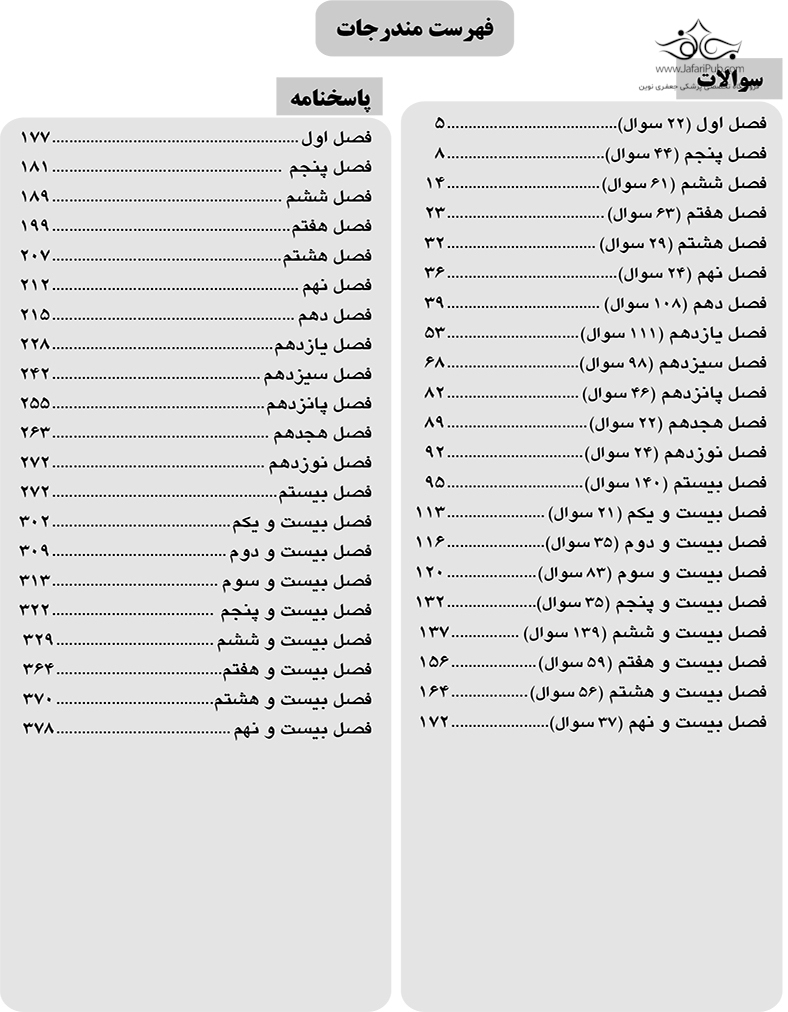 فهرست مندرجات
www.JafariPub.com
سوالات
فصل اول (۲۲ سوال)........................................۵
فصل پنجم (۴۴ سوال).....................................۸
فصل ششم (۶۱ سوال)....................................۱۴
فصل هفتم (۶۳ سوال).....................................۲۳
فصل هشتم (۲۹ سوال)....................................۳۲
فصل نهم (۲۴ سوال)........................................۳۶
فصل دهم (۱۰۸ سوال)....................................۳۹
فصل یازدهم (۱۱۱ سوال)...............................۵۳
فصل سیزدهم (۹۸ سوال)...............................۶۸
فصل پانزدهم (۴۶ سوال)...............................۸۲
فصل هجدهم (۲۲ سوال).................................۸۹
فصل نوزدهم (۲۴ سوال).................................۹۲
فصل بیستم (۱۴۰ سوال).................................۹۵
فصل بیست و یکم (۲۱ سوال).......................۱۱۳
فصل بیست و دوم (۳۵ سوال).......................۱۱۶
فصل بیست و سوم (۸۳ سوال).....................۱۲۰
فصل بیست و پنجم (۳۵ سوال).....................۱۳۲
فصل بیست و ششم (۱۳۹ سوال)................۱۳۷
فصل بیست و هفتم (۵۹ سوال)....................۱۵۶
فصل بیست و هشتم (۵۶ سوال)..................۱۶۴
فصل بیست و نهم (۳۷ سوال).......................۱۷۲
پاسخنامه
فصل اول..........................................................۱۷۷
فصل پنجم......................................................۱۸۱
فصل ششم......................................................۱۸۹
فصل هفتم........................................................۱۹۹
فصل هشتم......................................................۲۰۷
فصل نهم..........................................................۲۱۲
فصل دهم.........................................................۲۱۵
فصل یازدهم....................................................۲۲۸
فصل سیزدهم.................................................۲۴۲
فصل پانزدهم..................................................۲۵۵
فصل هجدهم...................................................۲۶۳
فصل نوزدهم..................................................۲۷۲
فصل بیستم.....................................................۲۷۲
فصل بیست و یکم..........................................۳۰۲
فصل بیست و دوم.........................................۳۰۹
فصل بیست و سوم.......................................۳۱۳
فصل بیست و پنجم......................................۳۲۲
فصل بیست و ششم.....................................۳۲۹
فصل بیست و هفتم.......................................۳۶۴
فصل بیست و هشتم.....................................۳۷۰
فصل بیست و نهم.........................................۳۷۸